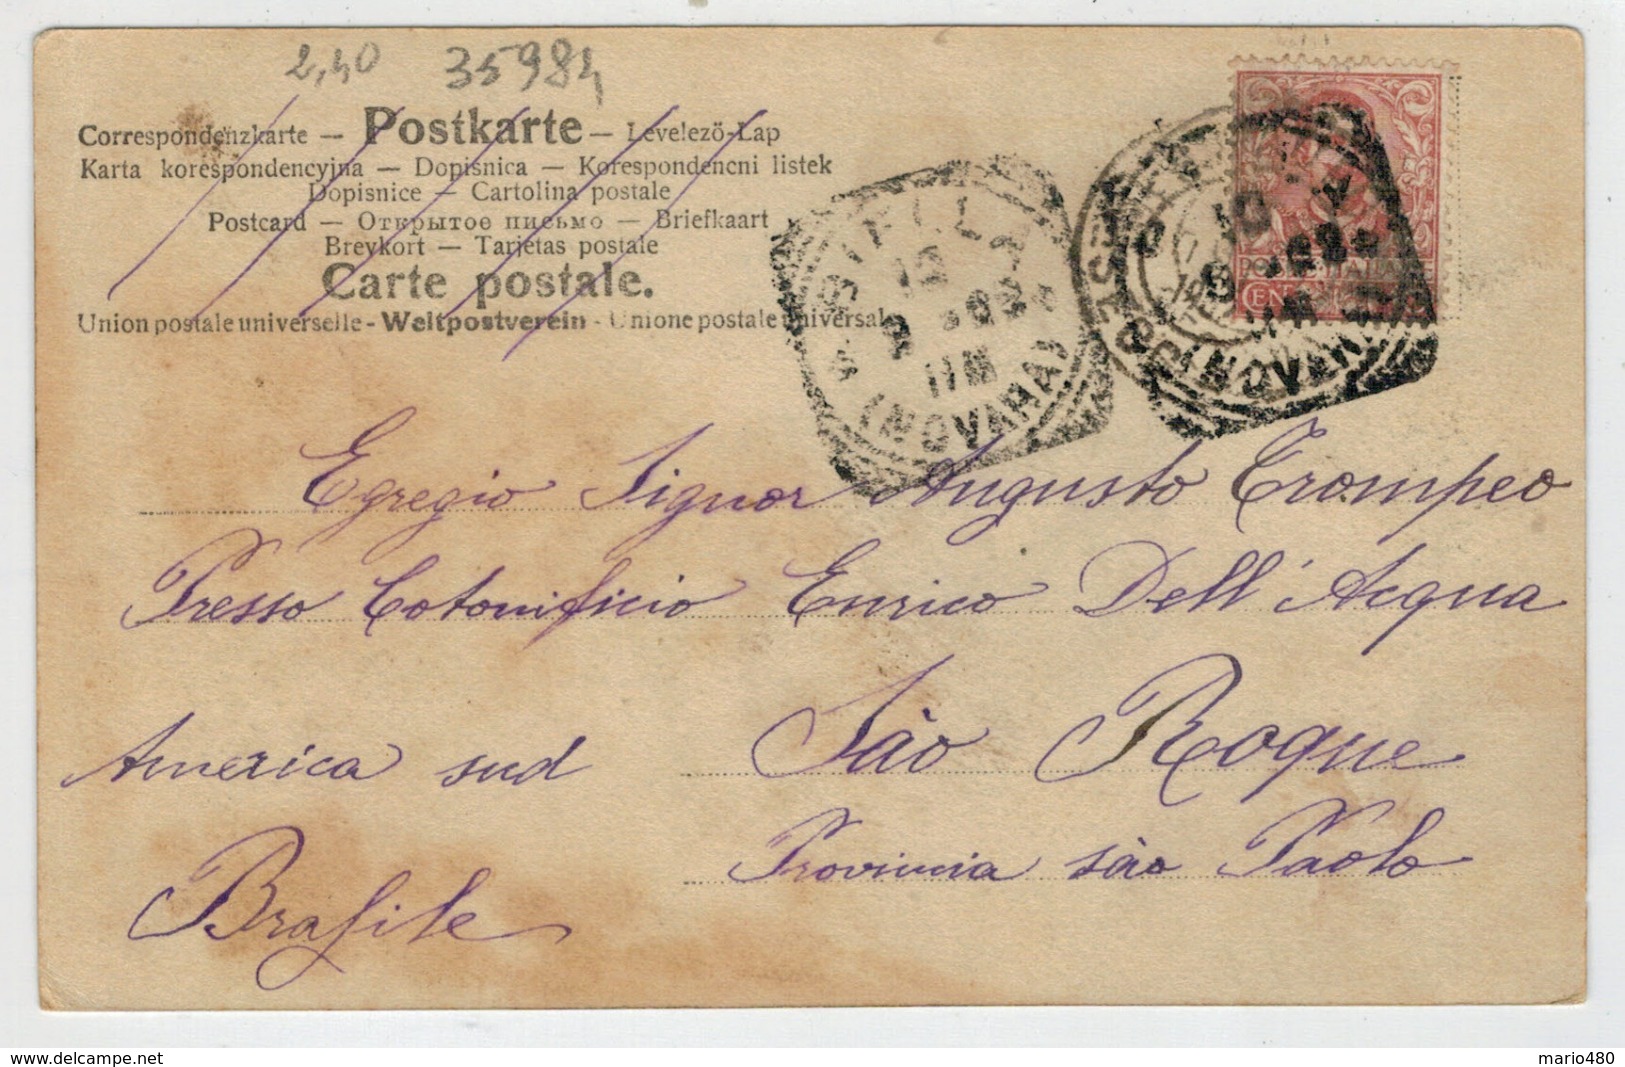 2,40 35984
Correspondenzkarte — Postkarte — Levelezö-Lap
Karta korespondencyjna — Dopisnica — Korespondencni listek
Dopisnice — Cartolina postale
Postcard — Открытое письмо — Briefkaart
Brevkort — Tarjetas postale
Carte postale.
Union postale universelle - Weltpostverein - Unione postale universale
(NOVARA)
11 M
(NOVARA)
POSTE ITALIANE
Egregio Signor Augusto Trompeo
Presso Cotonificio Enrico Dell'Acqua
São Roque
America sud
Provincia São Paolo
Brasile
mario480